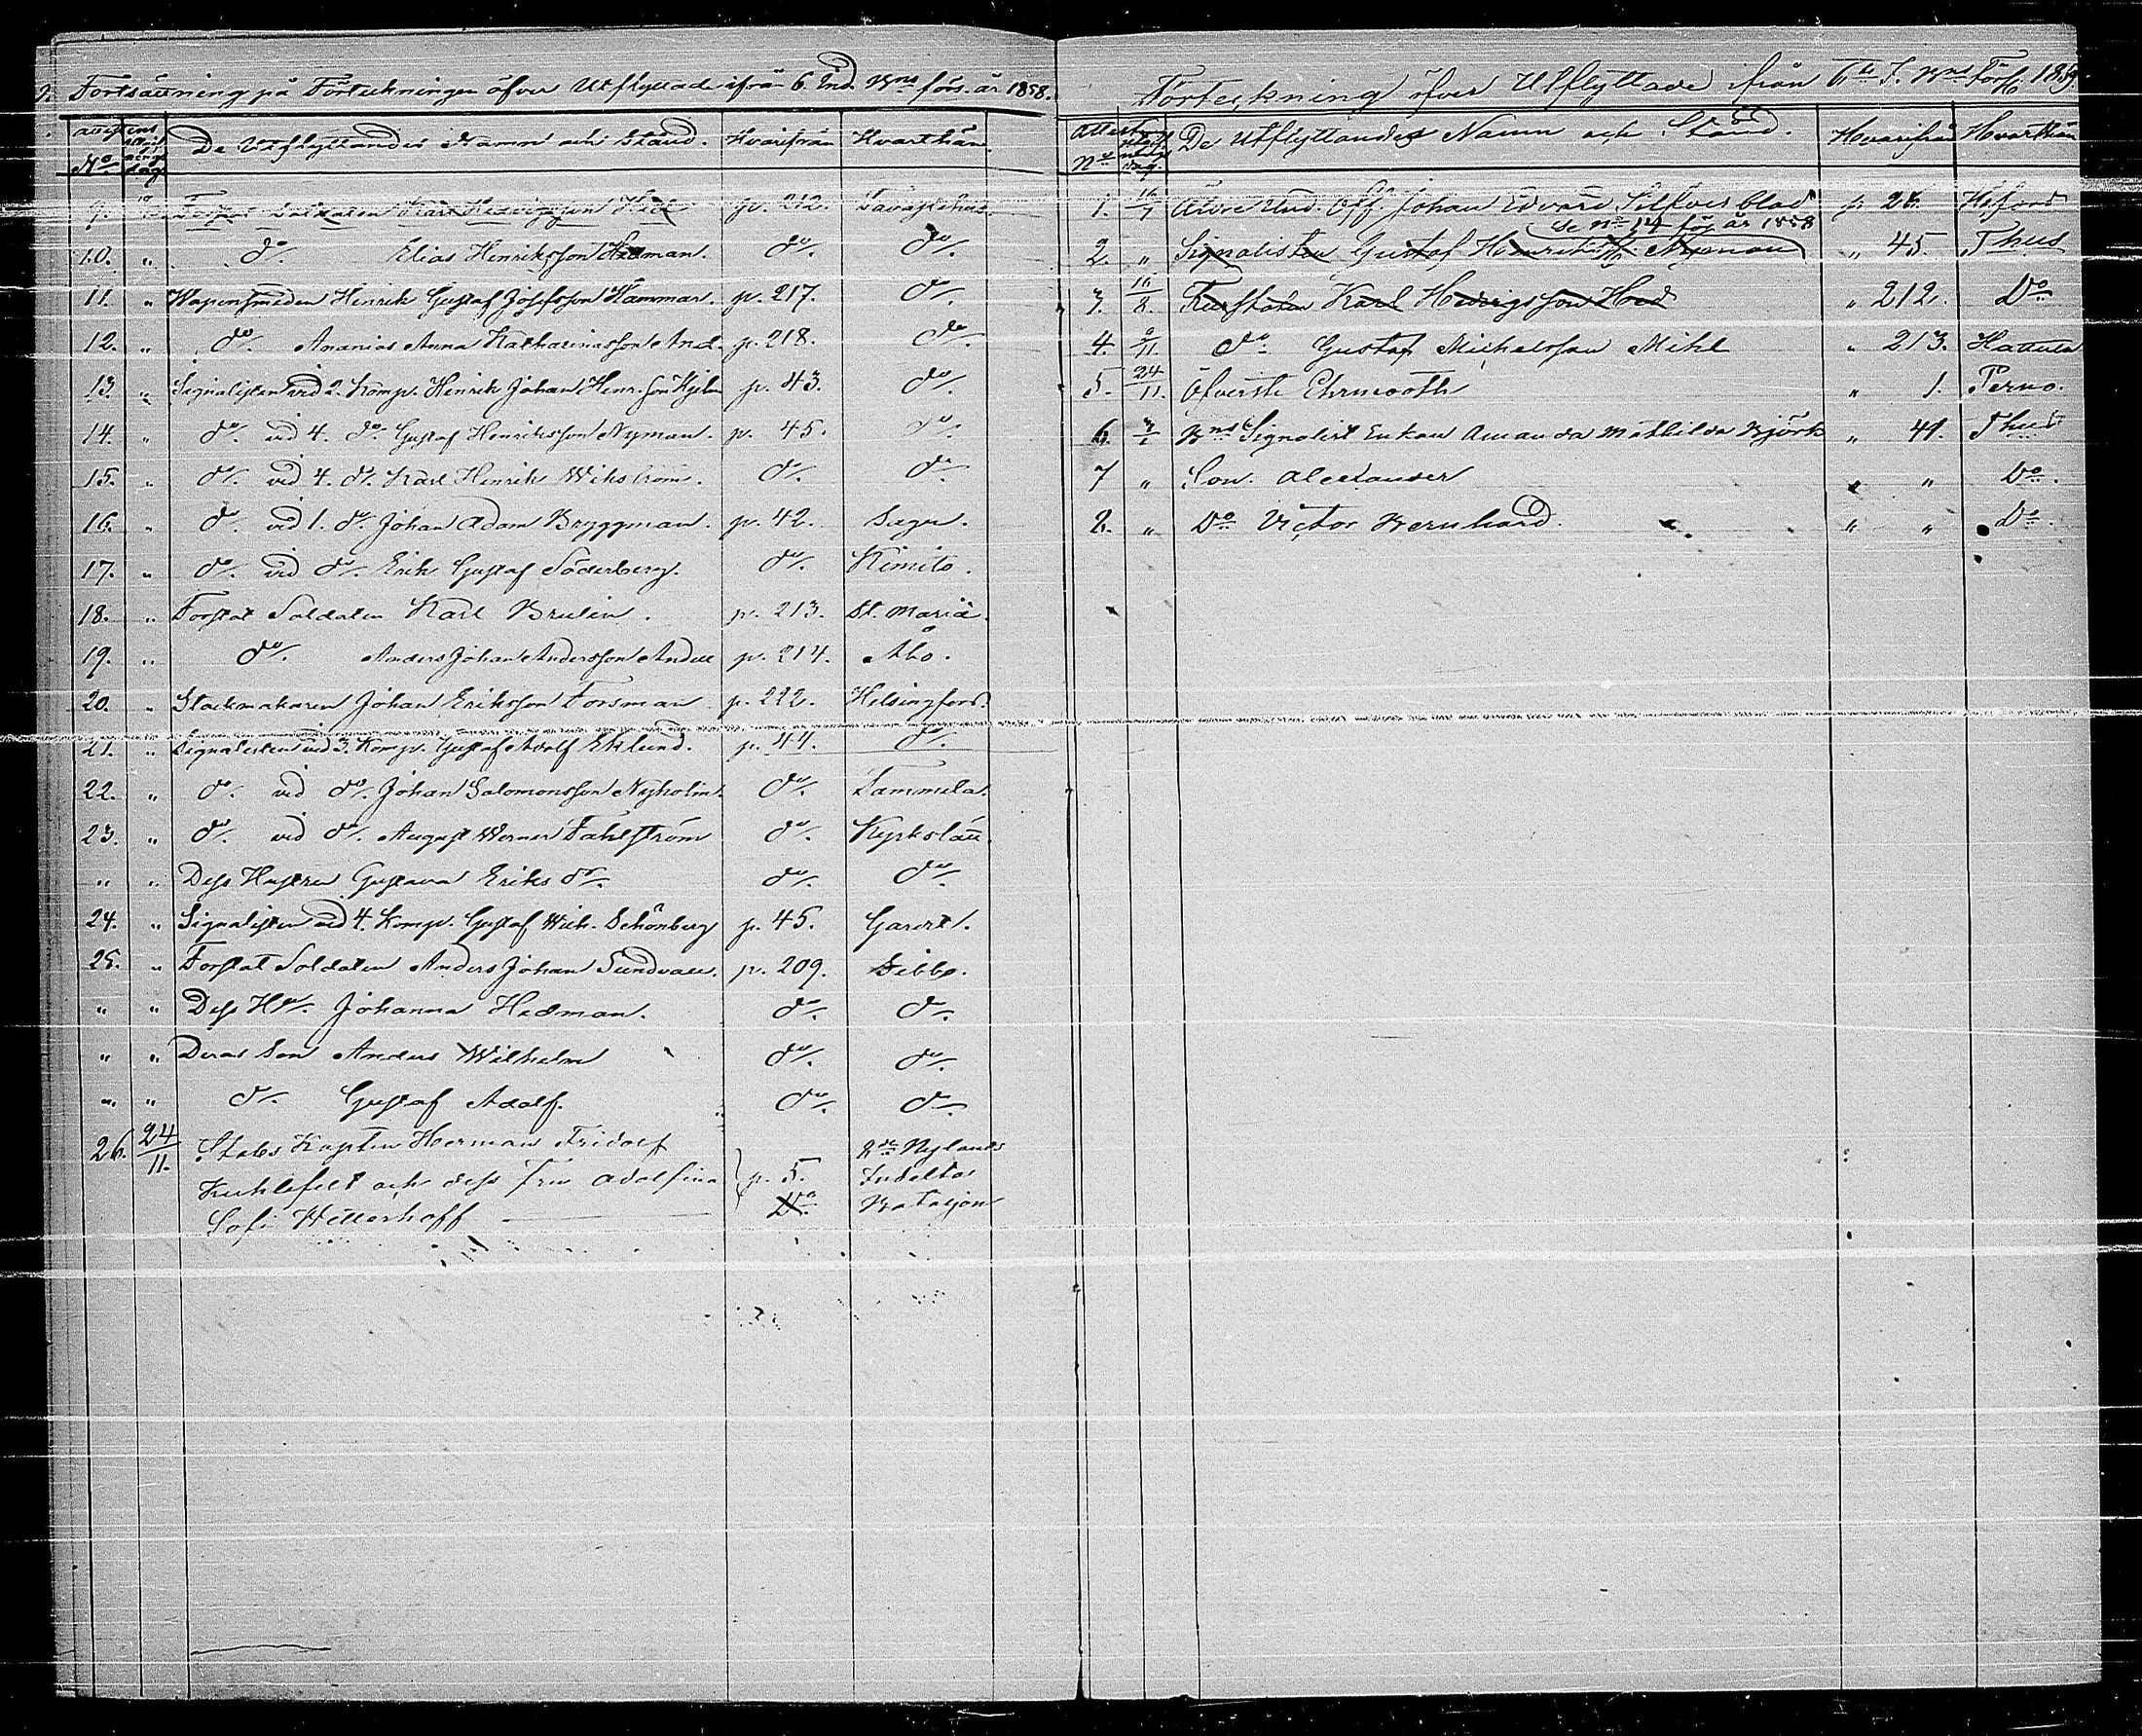 Fortsättning på Förteckningen öfver Utflyttade ifrån 6. Ind. Bns förs. år 1858.
Attestens
No utgifnings dag
De Utflyttandes Namn och Stånd. Hvarifrån Hvarthän.
9. Forstat Soldaten Karl Hedvigsson Hed p. 212. Tavastehus
10. " do Elias Henriksson Hedman. do. do.
11. " Wapensmeden Henrik Gustaf Josefsson Hammar. p. 217. do.
12. " do. Ananias Anna Katharinasson And. p. 218. do.
13. " Signalisten vid 2. Komp. Henrik Johan Henr.son p. 43. do.
14. " do. vid 4. do. Gustaf Henriksson Nyman. p. 45. do.
15. " do. vid 4. do. Karl Henrik Wikström. do. do.
16. " do. vid 1. do. Johan Adam Bryggman. p. 42. Sagu.
17. " do. vid do. Erik Gustaf Söderberg. do. Kimito.
18. " Forstat Soldaten Karl Brulin. p. 213. St. Mariæ.
19. " do. Anders Johan Andersson p. 214. Åbo.
20. " Stockmakaren Johan Eriksson Forsman p. 222. Helsingfors.
21. " Signalisten vid 3. Komp. Gustaf Adolf Eklund. p. 44. do.
22. " do. vid do. Johan Salomonsson Nyholm. do. Tammela.
23. " do. vid do. August Werner Fahlström do. Kyrkslätt.
" " Dess Hustru Gustava Eriks dr. do. do.
24. " Signalisten vid 4. Komp. Gustaf Wilh. Schönberg p. 45.
25. " Forstat Soldaten Anders Johan Sundvall. p. 209. Sibbo.
" " Dess Hu. Johanna Hedman. do. do.
" " Deras Son Anders Wilhelm do. do.
" " do. Gustaf Adolf. do. do.
26. 24/11. Stabs Kapten Herman Fridolf 2dra Nylands
Kuhlefelt och dess Fru Adolfina p. 5. Indelta
Sofi Hillerhoff Do. Bataljon
Förteckning öfver Utflyttade ifrån VI. I. Bns Förs. 1859.
Attestens
No utgifnings dag.
De Utflyttandes Namn och Stånd. Hvarifrån Hvarthän
1. 16/7 Äldre Und. Off. Johan Edvard Silfverblad p 26. H:fors
se No 14 för år 1858
2. " Signalisten Gustaf Henriksson Nyman " 45. T:hus
3. 16/8. Forstaten Karl Hedvigsson Hed " 212. Do
4. 9/11. do Gustaf Michelsson Mihl " 213. Hattula
5. 24/11. Öfverste Ehrnrooth " 1. Perno.
6. Bns Signalist Enkan Amanda Mathilda Björk " 41. T:hus
7 " Son. Alexander " " Do.
8. " Do Victor Bernhard. " " Do.